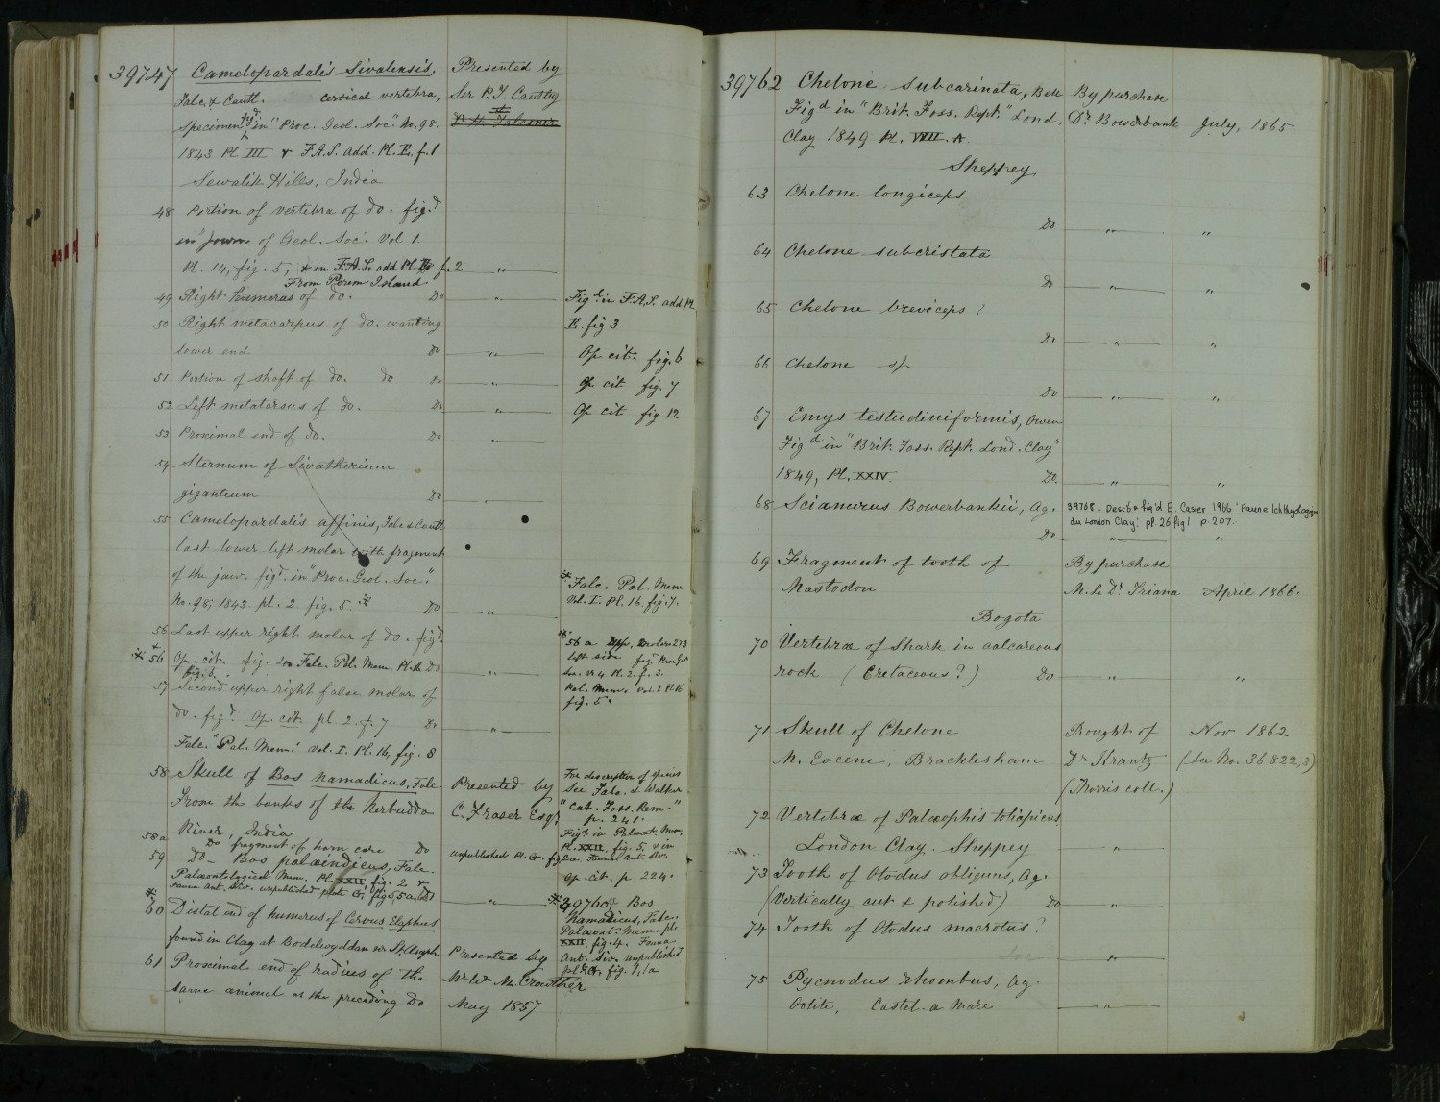 39747 Camelopardalis Sivalensis, Presented by
Falc. & Cautl. cervical vertebra, Sir P. T. Cautley
specimen fig.d in "Proc. Geol. Soc." No. 98. & Dr. H. Falconer
1843 Pl. III & F.A.S. add. Pl. E. f. 1
Sewalik Hills, India
48 Portion of vertebra of do. fig.d
in Journ. of Geol. Soc. Vol 1.
Pl. 14, fig. 5, & in F.A.S. add Pl. E f. 2 "
From Perim Island
49 Right humerus of do. Do " Fig.d in F.A.S. add. Pl.
E. fig 3
50 Right metacarpus of do. wanting
lower end Do " Op. cit. fig. 6
51 Portion of shaft of do. do Do " Op. cit. fig. 7
52 Left metatarsus of do. Do " Op. cit. fig 12
53 Proximal end of do. Do "
54 Sternum of Sivatherium
giganteum Do "
55 Camelopardalis affinis, Falc & Cautl
last lower left molar with fragment
of the jaw. fig.d in "Proc. Geol. Soc."
No. 98, 1843. pl. 2. fig. 5. * Do "
* Falc. Pal. Mem
Vol. I. Pl. 16. fig. 7.
56 Last upper right molar of do. fig.d
* 56 Op. cit. fig. Falc. Pal. Mem Pl. 16 Do "
fig. 6.
56 a upp. molars 2 & 3
left side
Pl. 2. f.
Pal. Mem. Vol. I Pl. 16
fig. 5.
57 Second upper right false molar of
do. fig.d Op. cit. pl. 2. f. 7 Do "
Falc. "Pal. Mem." Vol. I. Pl. 16, fig. 8
58 Skull of Bos namadicus, Falc Presented by
From the banks of the Nerbudda C. Fraser Esq.r
River, India
For description of species
see Falc. & Walker
"Cat. Foss. Rem."
p. 241.
Fig.d in Palaeont. Mem.
Pl. XXII, fig. 5, & in
58a Do fragment of horn core Do
59 Do Bos palaeindicus, Falc.
Palaeontological Mem. Pl. XXII, fig. 2 &
Fauna Ant. Siv. unpublished plate G, fig. 5, 5a Do "
Op. cit. p. 224.
* 39760 Bos
Namadicus, Falc.
Palaeont. Mem. pl.
XXII. fig. 4. Fauna
Ant. Siv. unpublished
pl. G. fig. 1, 1a
* 60 Distal end of humerus of Cervus Elaphus
found in Clay at Bodelwyddan nr. St. Asaph Presented by
61 Proximal end of radius of the Mr. W. M. Crowther
same animal as the preceding Do May 1857
39762 Chelone subcarinata, Bell By purchase
Fig.d in "Brit. Foss. Rept." Lond. Dr. Bowerbank July, 1865
Clay 1849 Pl. VIII. A.
Sheppey
63 Chelone longiceps
Do " "
64 Chelone subcristata
Do " "
65 Chelone breviceps?
Do " "
66 Chelone sp.
Do " "
67 Emys testudiniformis, Owen
Fig.d in "Brit. Foss. Rept. Lond. Clay"
1849, Pl. XXIV. Do. " "
68 Sciaenurus Bowerbankii, Ag. 39768. Descb & fig'd E. Casier 1966 'Faune Ichthyologique
du London Clay.' pl. 26 fig 1 p. 207.
Do " "
69 Fragment of tooth of By purchase
Mastodon M. le Dr. Triana April 1866.
Bogota
70 Vertebrae of Shark in calcareous
rock (Cretaceous?) Do " "
71 Skull of Chelone Brought of Nov 1862
M. Eocene, Bracklesham Dr Krantz (See No. 36822,3)
(Morris coll.)
72 Vertebrae of Palaeophis toliapicus
London Clay. Sheppey "
73 Tooth of Otodus obliquus, Ag.
(Vertically cut & polished) Do "
74 Tooth of Otodus macrotus?
"
75 Pycnodus rhombus, Ag.
Oolite, Castel-a-Mare "